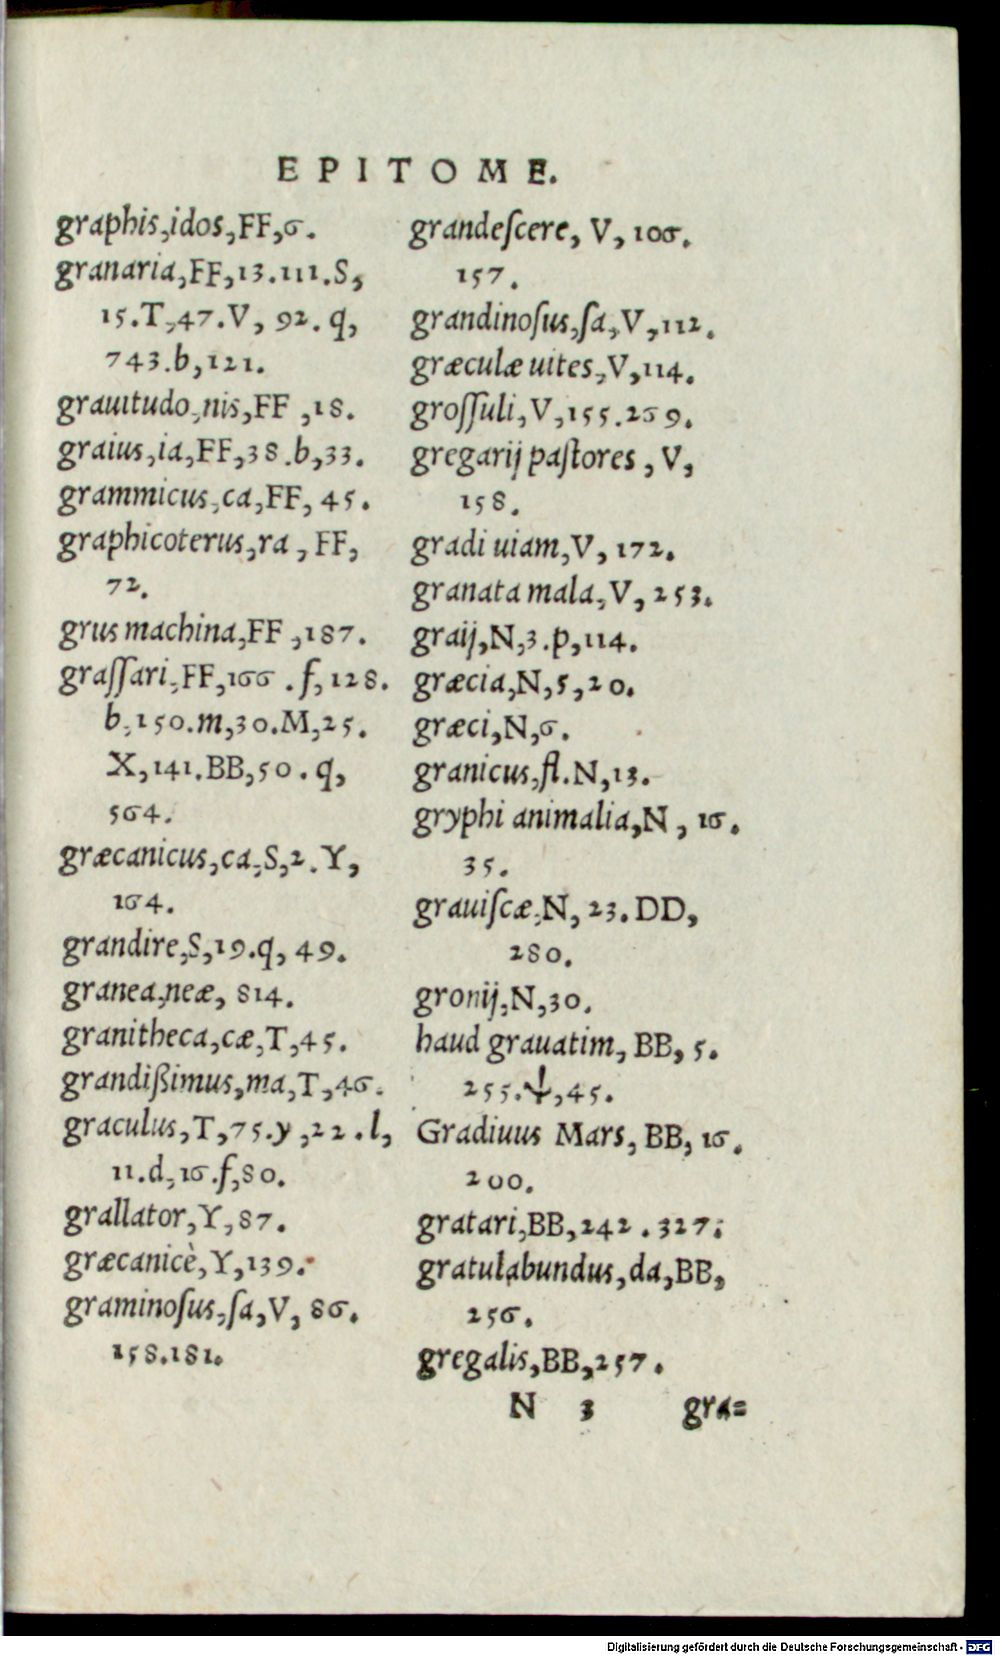 EPITOME.
graphis,idos,FF,6.
granaria,FF,13.111.S,
15.T,47.V, 92. q,
743.b,121.
grauitudo,nis,FF ,18.
graius,ia,FF,38.b,33.
grammicus,ca,FF, 45.
graphicoterus,ra, FF,
72.
grus machina,FF ,187.
graſſari,FF,166 . f,128.
b,150.m,30.M,25.
X,141.BB,50. q,
564.
græcanicus,ca,S,2.Y,
164.
grandire,S,19.q, 49.
granea,neæ, 814.
granitheca,cæ,T,45.
grandißimus,ma,T,46.
graculus,T,75.y,22.l,
11.d,16.f,80.
grallator,Y,87.
græcanicè,Y,139.
graminoſus,ſa,V, 86.
158.181.
grandeſcere, V, 106.
157.
grandinoſus,ſa,V,112.
græculæ uites,V,114.
groſſuli,V,155.269.
gregarij paſtores, V,
158.
gradi uiam,V, 172.
granata mala,V, 253.
graij,N,3.p,114.
græcia,N,5,20.
græci,N,6.
granicus,fl.N,13.
gryphi animalia,N, 16.
35.
grauiſcæ,N, 23.DD,
280.
gronij,N,30.
haud grauatim, BB, 5.
255.Ψ,45.
Gradiuus Mars, BB, 16.
200.
gratari,BB,242.327.
gratulabundus,da,BB,
256.
gregalis,BB,257.
N 3 gra=
Digitalisierung gefördert durch die Deutsche Forschungsgemeinschaft - DFG